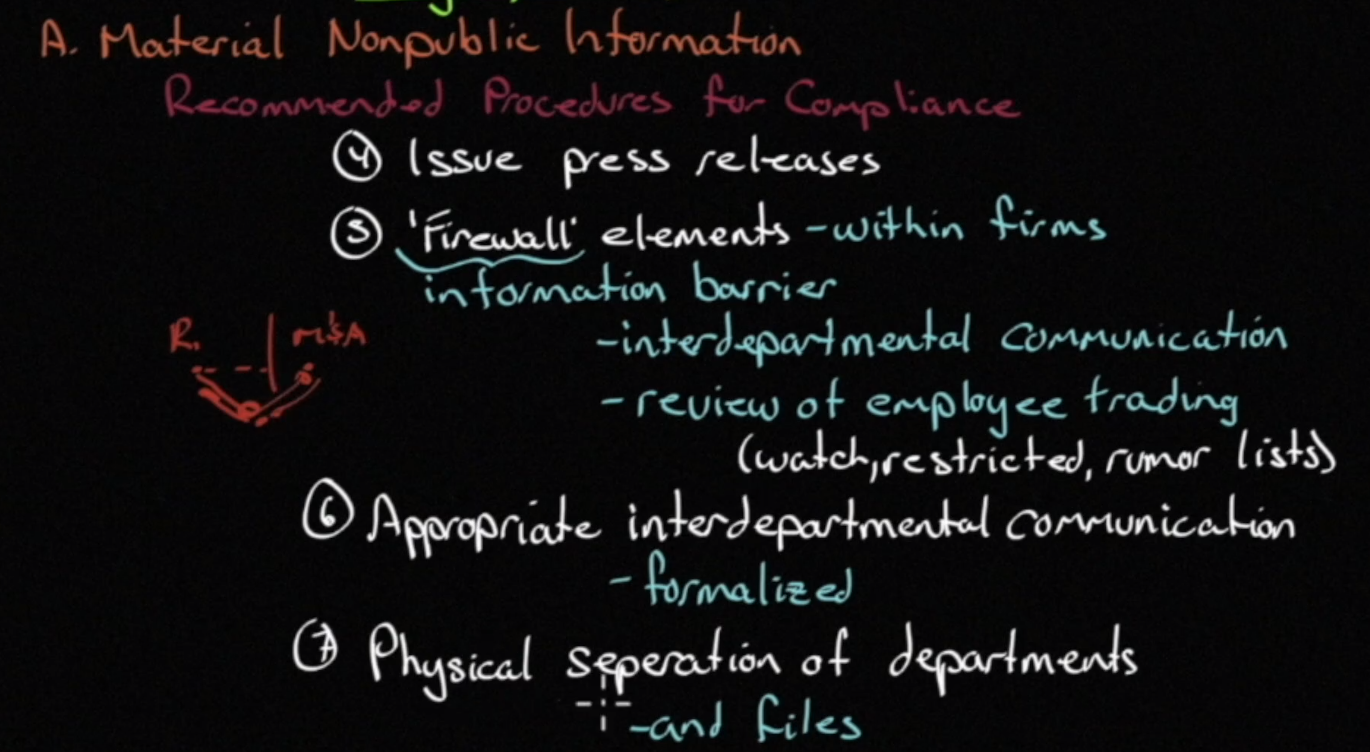 A. Material Nonpublic Information
Recommended Procedures for Compliance
④ Issue press releases
⑤ 'Firewall' elements - within firms
information barrier
R. | M&A
- interdepartmental communication
- review of employee trading
(watch, restricted, rumor lists)
⑥ Appropriate interdepartmental communication
- formalized
⑦ Physical seperation of departments
- and files